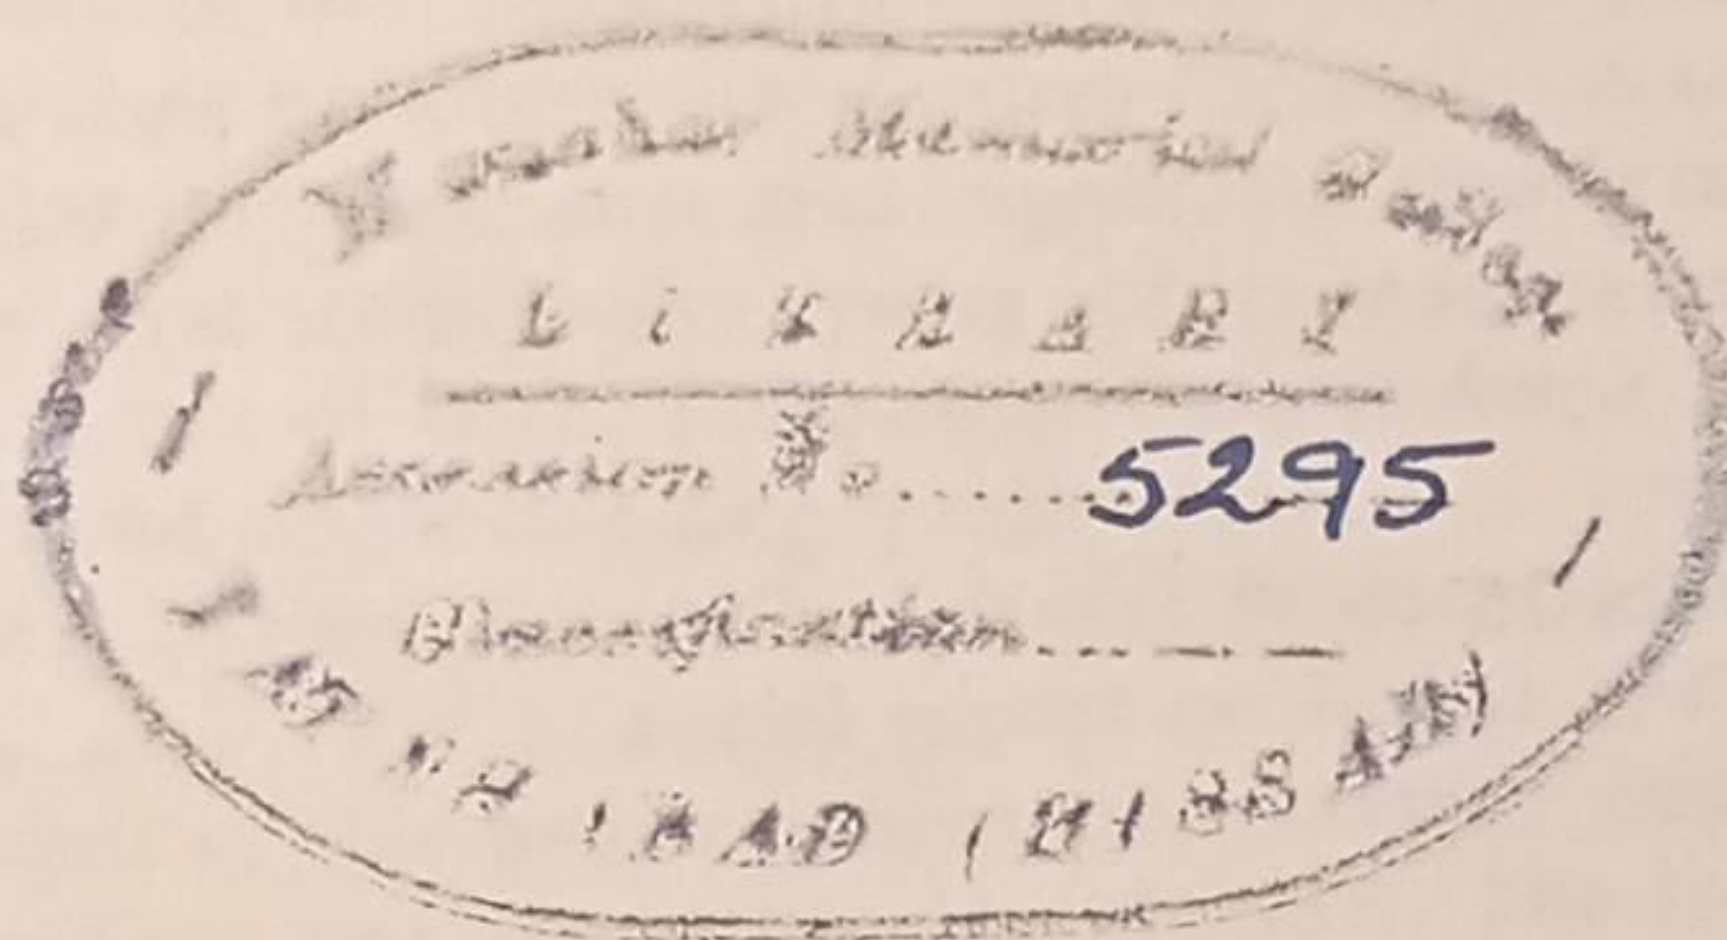 Memorial College
LIBRARY
Accession No. ........ 5295
Classification ....... — —
(HISSAR)